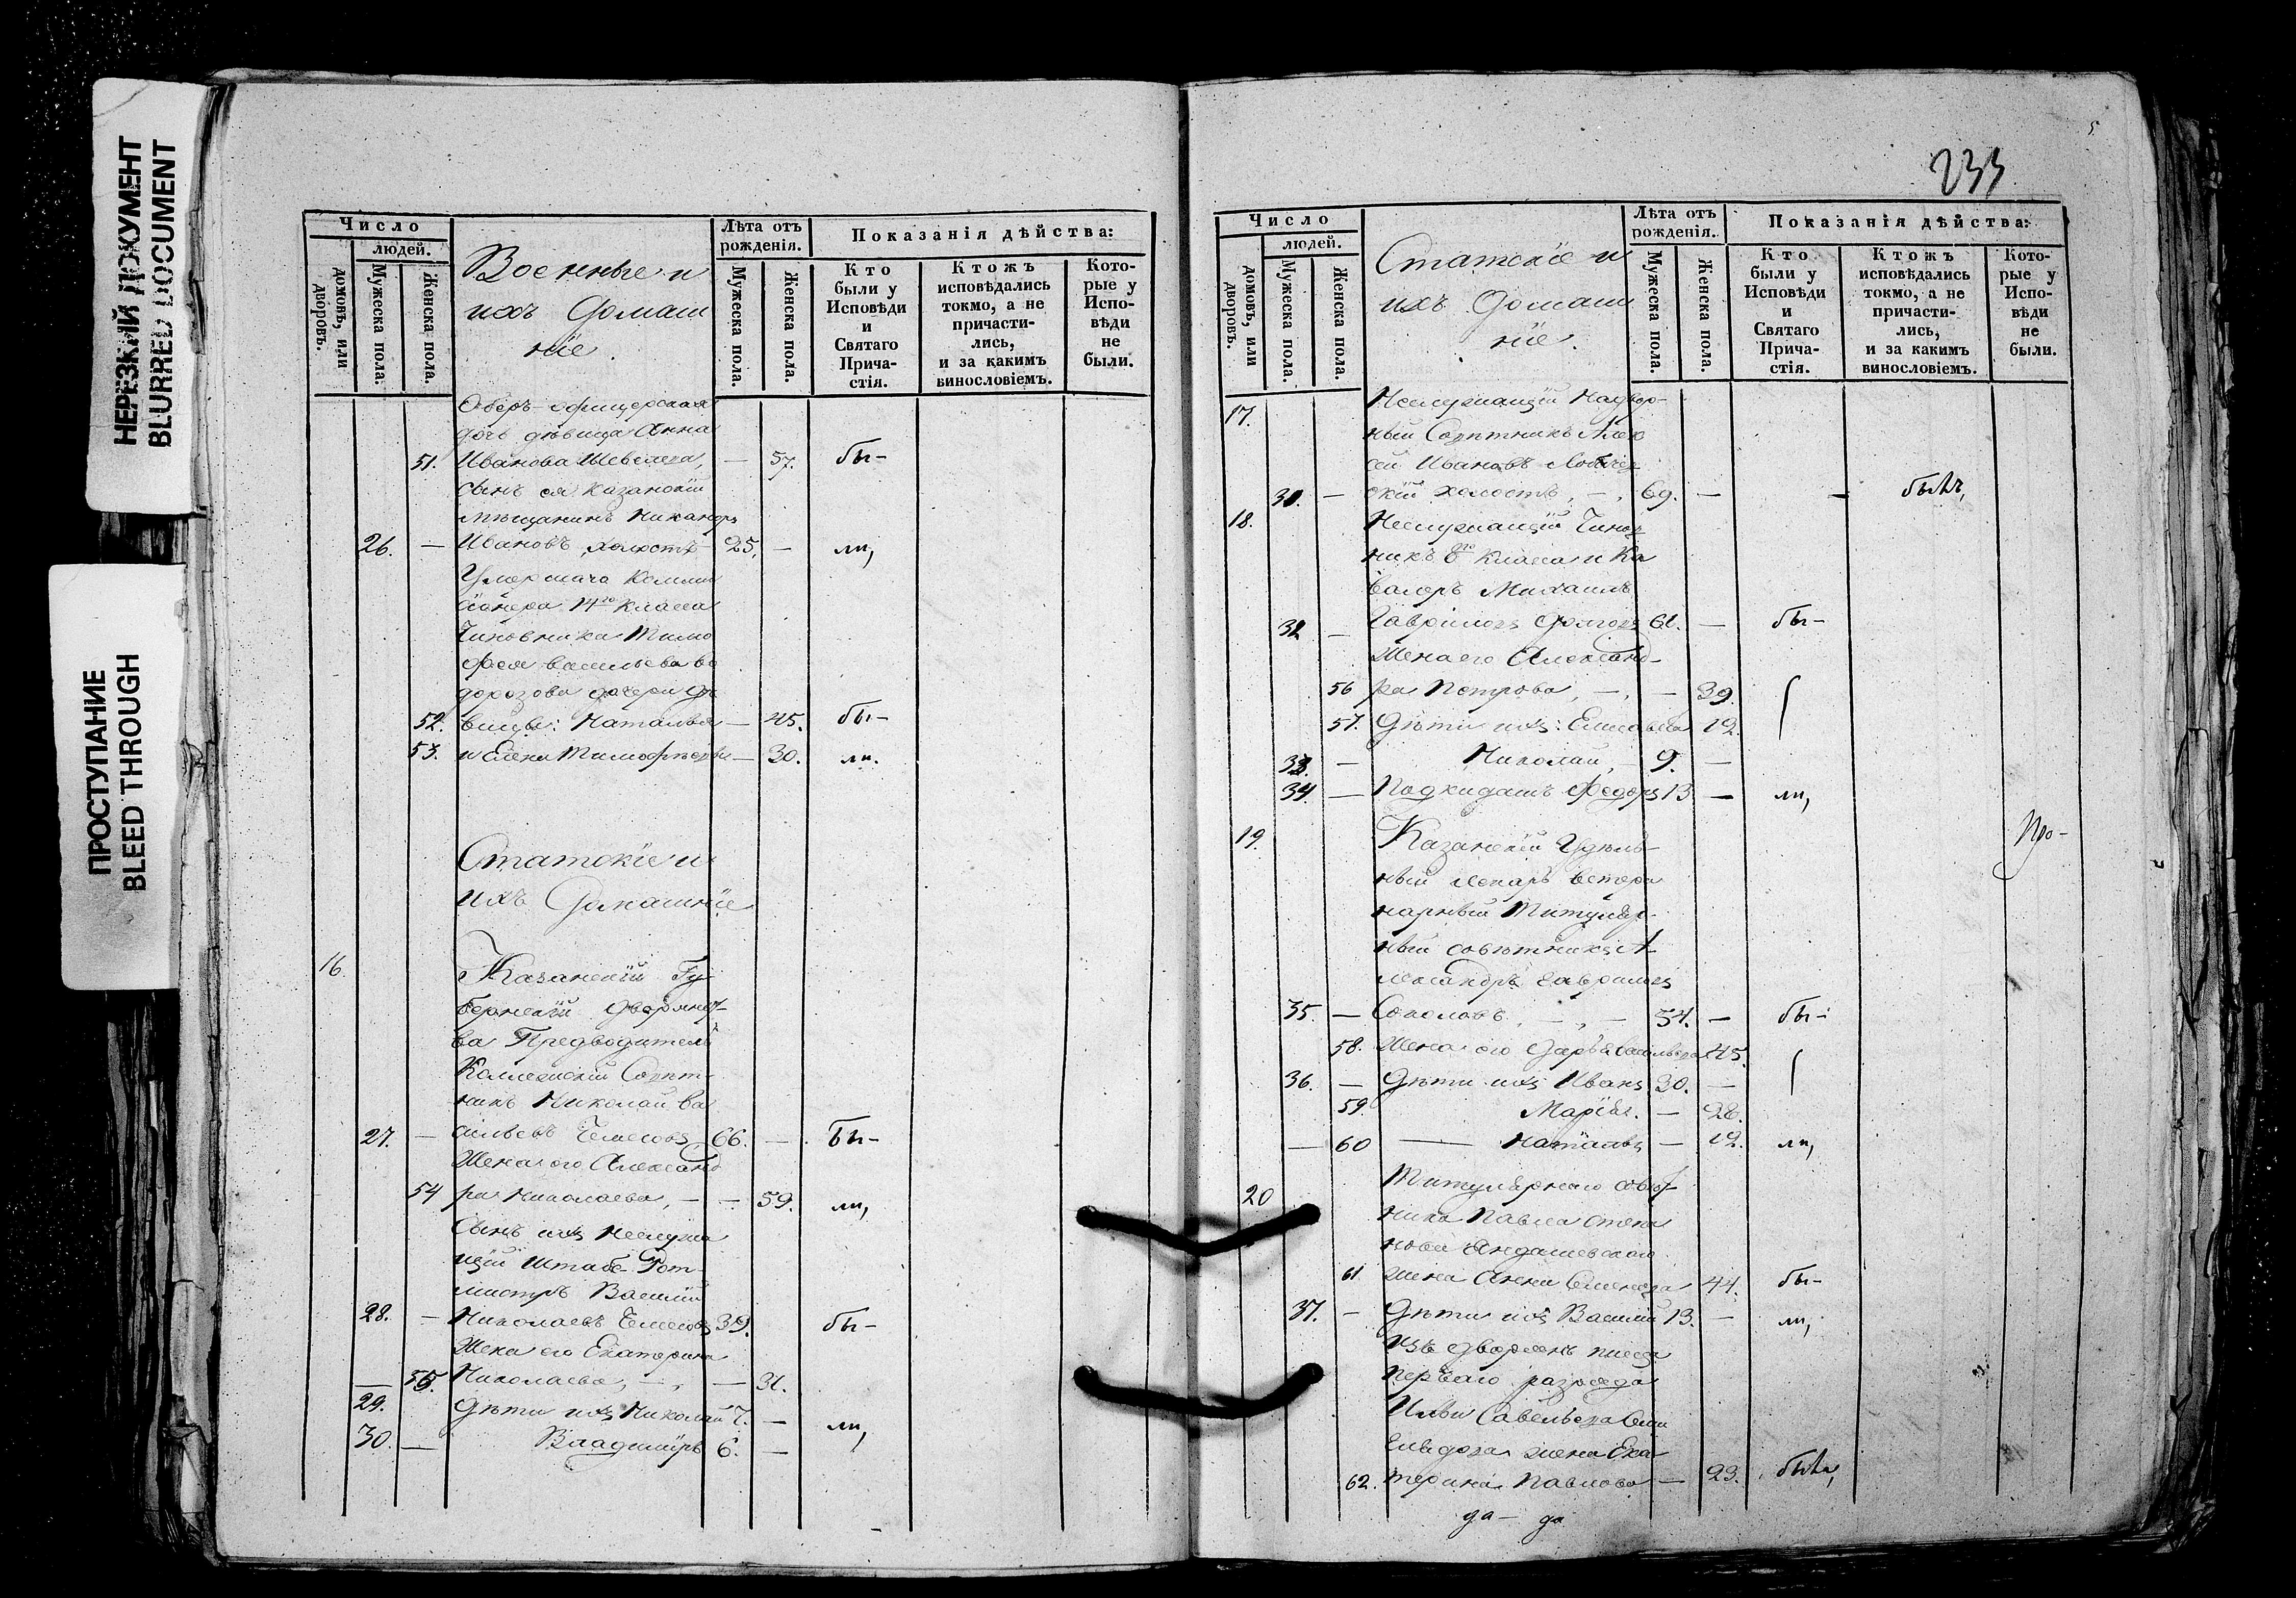 НЕРЕЗКИЙ ДОКУМЕНТ
BLURRED DOCUMENT
ПРОСТУПАНИЕ
BLEED THROUGH
Число
людей.
домовъ, или дворовъ.
Мужеска пола.
Женска пола.
Военные и
ихъ Домаш
ніе.
Лѣта отъ
рожденія.
Мужеска пола.
Женска пола.
Показанія дѣйства:
Кто
были у
Исповѣди
и
Святаго
Прича-
стія.
Ктожъ
исповѣдались
токмо, а не
причасти-
лись,
и за какимъ
винословіемъ.
Кото-
рые у
Испо-
вѣди
не
были.
Оберъ-офицерская
дочь дѣвица Анна
51. Иванова — 57. бы-
Сынъ ея Казанскій
мѣщанинъ Никаноръ
26. — Ивановъ, холостъ 25. — ли,
Умершаго Комми
сіонера 14го класса
Чиновника Тимо
фея Васильева Во
дорозова дочери дѣ
52. вицы: Наталья — 45. бы-
53. и Елена Тимофѣевы — 30. ли.
Статскіе и
ихъ Домашніе
16. Казанскій Гу
бернскій Дворянст
ва Предводитель
Коллежскій Совѣт-
никъ Николай Ва
27. — сильевъ 66. — бы-
Жена его Александ
54 ра Николаева, — — 59. ли,
Сынъ ихъ Неслужа
щій Штабс Рот
мистръ Василій
28. — Николаевъ 39. бы-
Жена его Екатерина
55. Николаева, — — 31.
29. Дѣти ихъ Николай 7. — ли,
30. — Владиміръ 6. —
5.
233
Число
людей.
домовъ, или дворовъ.
Мужеска пола.
Женска пола.
Статскіе и
ихъ Домаш
ніе.
Лѣта отъ
рожденія.
Мужеска пола.
Женска пола.
Показанія дѣйства:
Кто
были у
Исповѣди
и
Святаго
Прича-
стія.
Ктожъ
исповѣдались
токмо, а не
причасти-
лись,
и за какимъ
винословіемъ.
Кото-
рые у
Испо-
вѣди
не
были.
17. Неслужащій Надвор-
ный Совѣтникъ Алек
сѣй Ивановъ
скій холостъ, — 69. — — былъ,
18. Неслужащій Чинов
никъ 8го Класса и Ка
валеръ Михаилъ
32 — Гавриловъ 61. — бы-
Жена его Александ-
56 ра Петрова, — — 39.
57. Дѣти ихъ: Елисавета 12.
33. — Николай, — 9. —
34. — Подкидышъ Федоръ 13 — ли,
19. Казанскій Удѣль- Про-
ный лекарь ветери
нарный Титуляр-
ный совѣтникъ А-
лександръ Гавриловъ
35. — Соколовъ, — 54. — бы-
58. Жена его Дарья Васильева 45.
36. — Дѣти ихъ Иванъ 30. —
59. Марія. — 28.
— 60 — Наталья — 12. ли,
20 Титулярнаго совѣт
ника Павла Степа
нова
61. жена Анна Семенова 44. бы-
37. — Дѣти ихъ Василій 13. — ли,
Изъ Дворянъ писца
перваго разряда
Ильи Савельева
жена Ека
62. терина Павлова — 23. была,
да — да